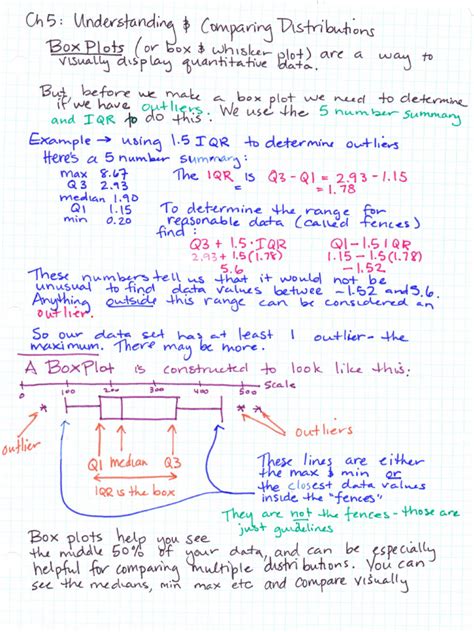 Ch5: Understanding & Comparing Distributions
Box Plots (or box & whisker plot) are a way to
visually display quantitative data.
But, before we make a box plot we need to determine
if we have outliers. We use the 5 number summary
and IQR to do this.
Example → using 1.5 IQR to determine outliers
Here's a 5 number summary:
max 8.67
Q3 2.93
median 1.90
Q1 1.15
min 0.20
The IQR is Q3 - Q1 = 2.93 - 1.15
= 1.78
To determine the range for
reasonable data (called fences)
find:
Q3 + 1.5·IQR
2.93 + 1.5(1.78)
5.6
Q1 - 1.5 IQR
1.15 - 1.5(1.78)
-1.52
These numbers tell us that it would not be
unusual to find data values betwee -1.52 and 5.6.
Anything outside this range can be considered an
outlier.
So our data set has at least 1 outlier - the
maximum. There may be more.
A BoxPlot is constructed to look like this:
0 100 200 300 400 500 Scale
outlier
outliers
Q1 median Q3
IQR is the box
These lines are either
the max & min or
the closest data values
inside the "fences"
They are not the fences - those are
just guidelines
Box plots help you see
the middle 50% of your data, and can be especially
helpful for comparing multiple distributions. You can
see the medians, min max etc and compare visually